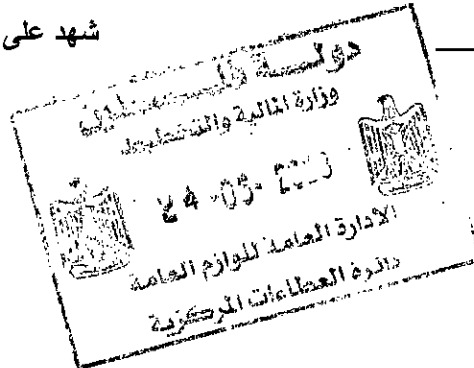 شهد على
دولة فلسطين
وزارة المالية والتخطيط
الادارة العامة للوازم العامة
دائرة العطاءات المركزية